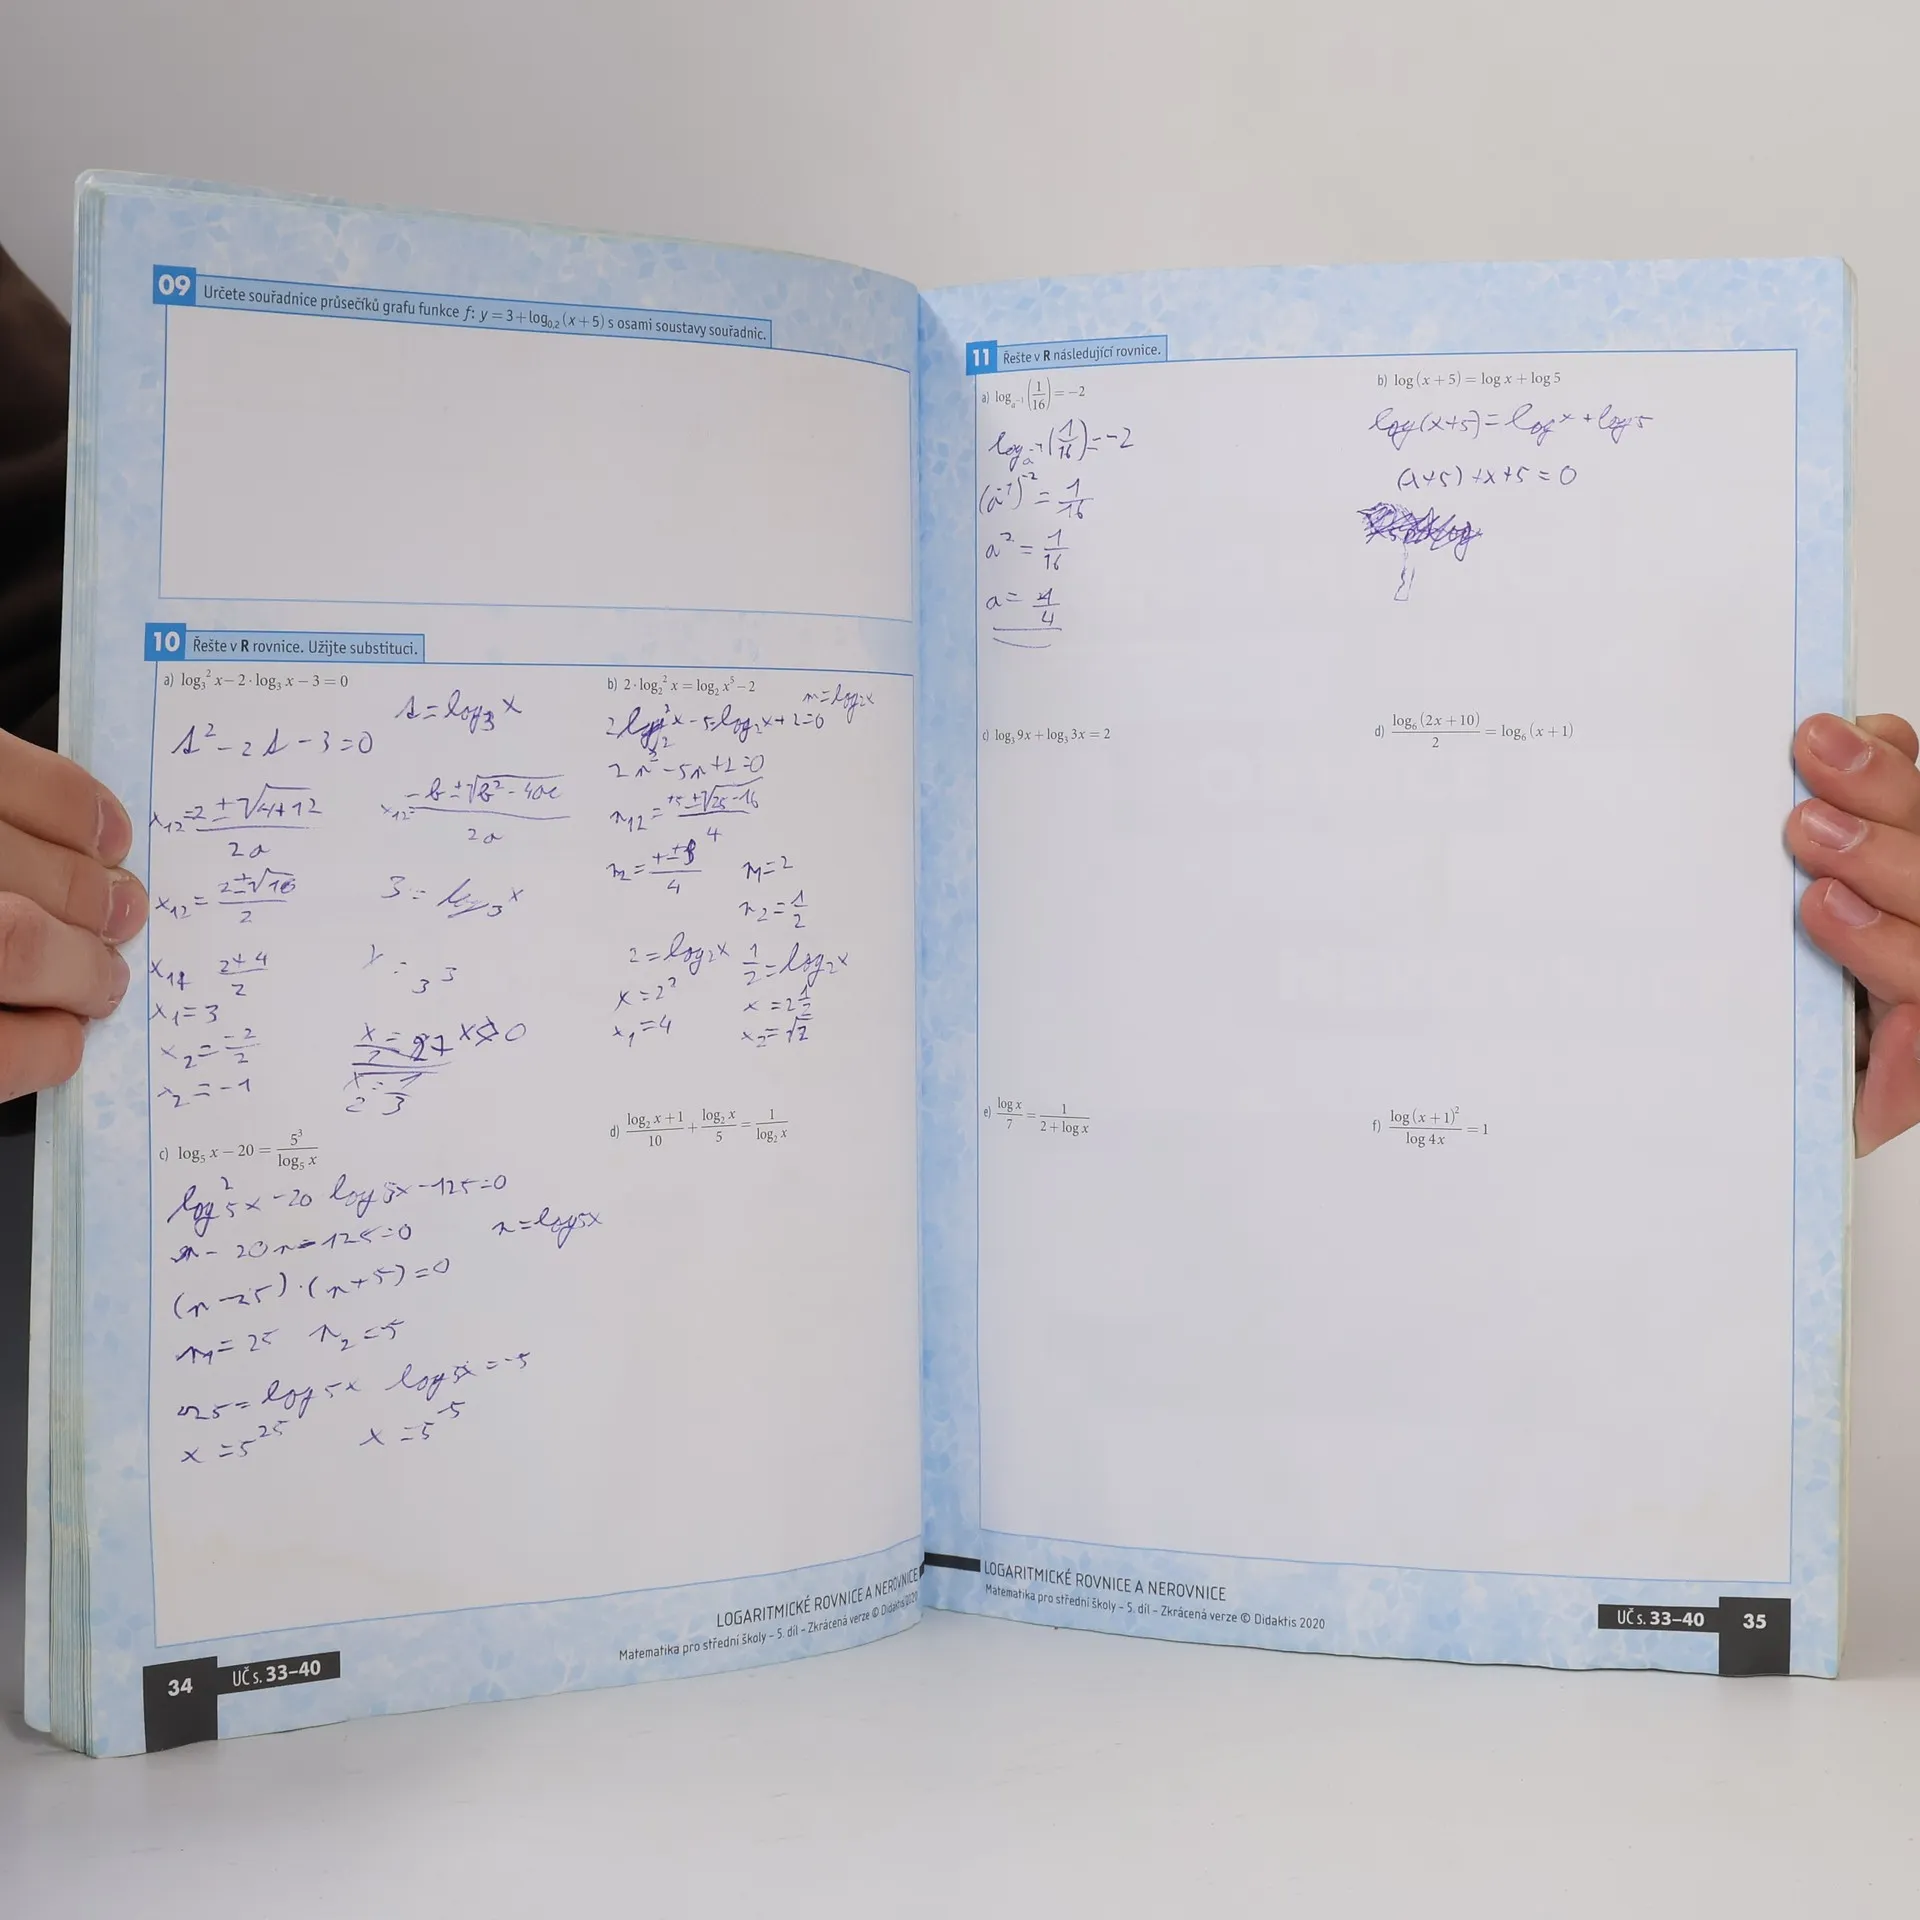 09 Určete souřadnice průsečíků grafu funkce f: y = 3 + log₀,₂ (x + 5) s osami soustavy souřadnic.
10 Řešte v R rovnice. Užijte substituci.
a) log₃² x − 2 · log₃ x − 3 = 0
s = log₃ x
s² − 2 s − 3 = 0
x₁₂ = (2 ± √(4+12)) / 2a
x₁₂ = (−b ± √(b² − 4ac)) / 2a
x₁₂ = (2 ± √16) / 2
3 = log₃ x
x₁ (2 + 4) / 2
= 3³
x₁ = 3
x = 27 x > 0
x₂ = −2/2
x₂ = 1/3
x₂ = −1
b) 2 · log₂² x = log₂ x⁵ − 2
n = log₂ x
2 log₂² x − 5 log₂ x + 2 = 0
2n² − 5n + 2 = 0
n₁₂ = (+5 ± √(25 − 16)) / 4
n₁ = 2
n₂ = 1/2
2 = log₂ x 1/2 = log₂ x
x = 2² x = 2^(1/2)
x₁ = 4 x₂ = √2
c) log₅ x − 20 = 5³ / log₅ x
log²₅ x − 20 log₅ x − 125 = 0
n = log₅ x
n − 20n − 125 = 0
(n − 25) · (n + 5) = 0
n₁ = 25 n₂ = −5
25 = log₅ x log₅ x = −5
x = 5²⁵ x = 5⁻⁵
d) (log₂ x + 1) / 10 + log₂ x / 5 = 1 / log₂ x
LOGARITMICKÉ ROVNICE A NEROVNICE
Matematika pro střední školy – 5. díl – Zkrácená verze © Didaktis 2020
34 UČ s. 33–40
11 Řešte v R následující rovnice.
a) log_a⁻¹ (1/16) = −2
log_a⁻¹ (1/16) = −2
(a⁻¹)⁻² = 1/16
a² = 1/16
a = 1/4
b) log (x + 5) = log x + log 5
log (x+5) = log x + log 5
(x+5) + x + 5 = 0
c) log₃ 9x + log₃ 3x = 2
d) log₆ (2x + 10) / 2 = log₆ (x + 1)
e) log x / 7 = 1 / (2 + log x)
f) log (x + 1)² / log 4x = 1
LOGARITMICKÉ ROVNICE A NEROVNICE
Matematika pro střední školy – 5. díl – Zkrácená verze © Didaktis 2020
UČ s. 33–40 35